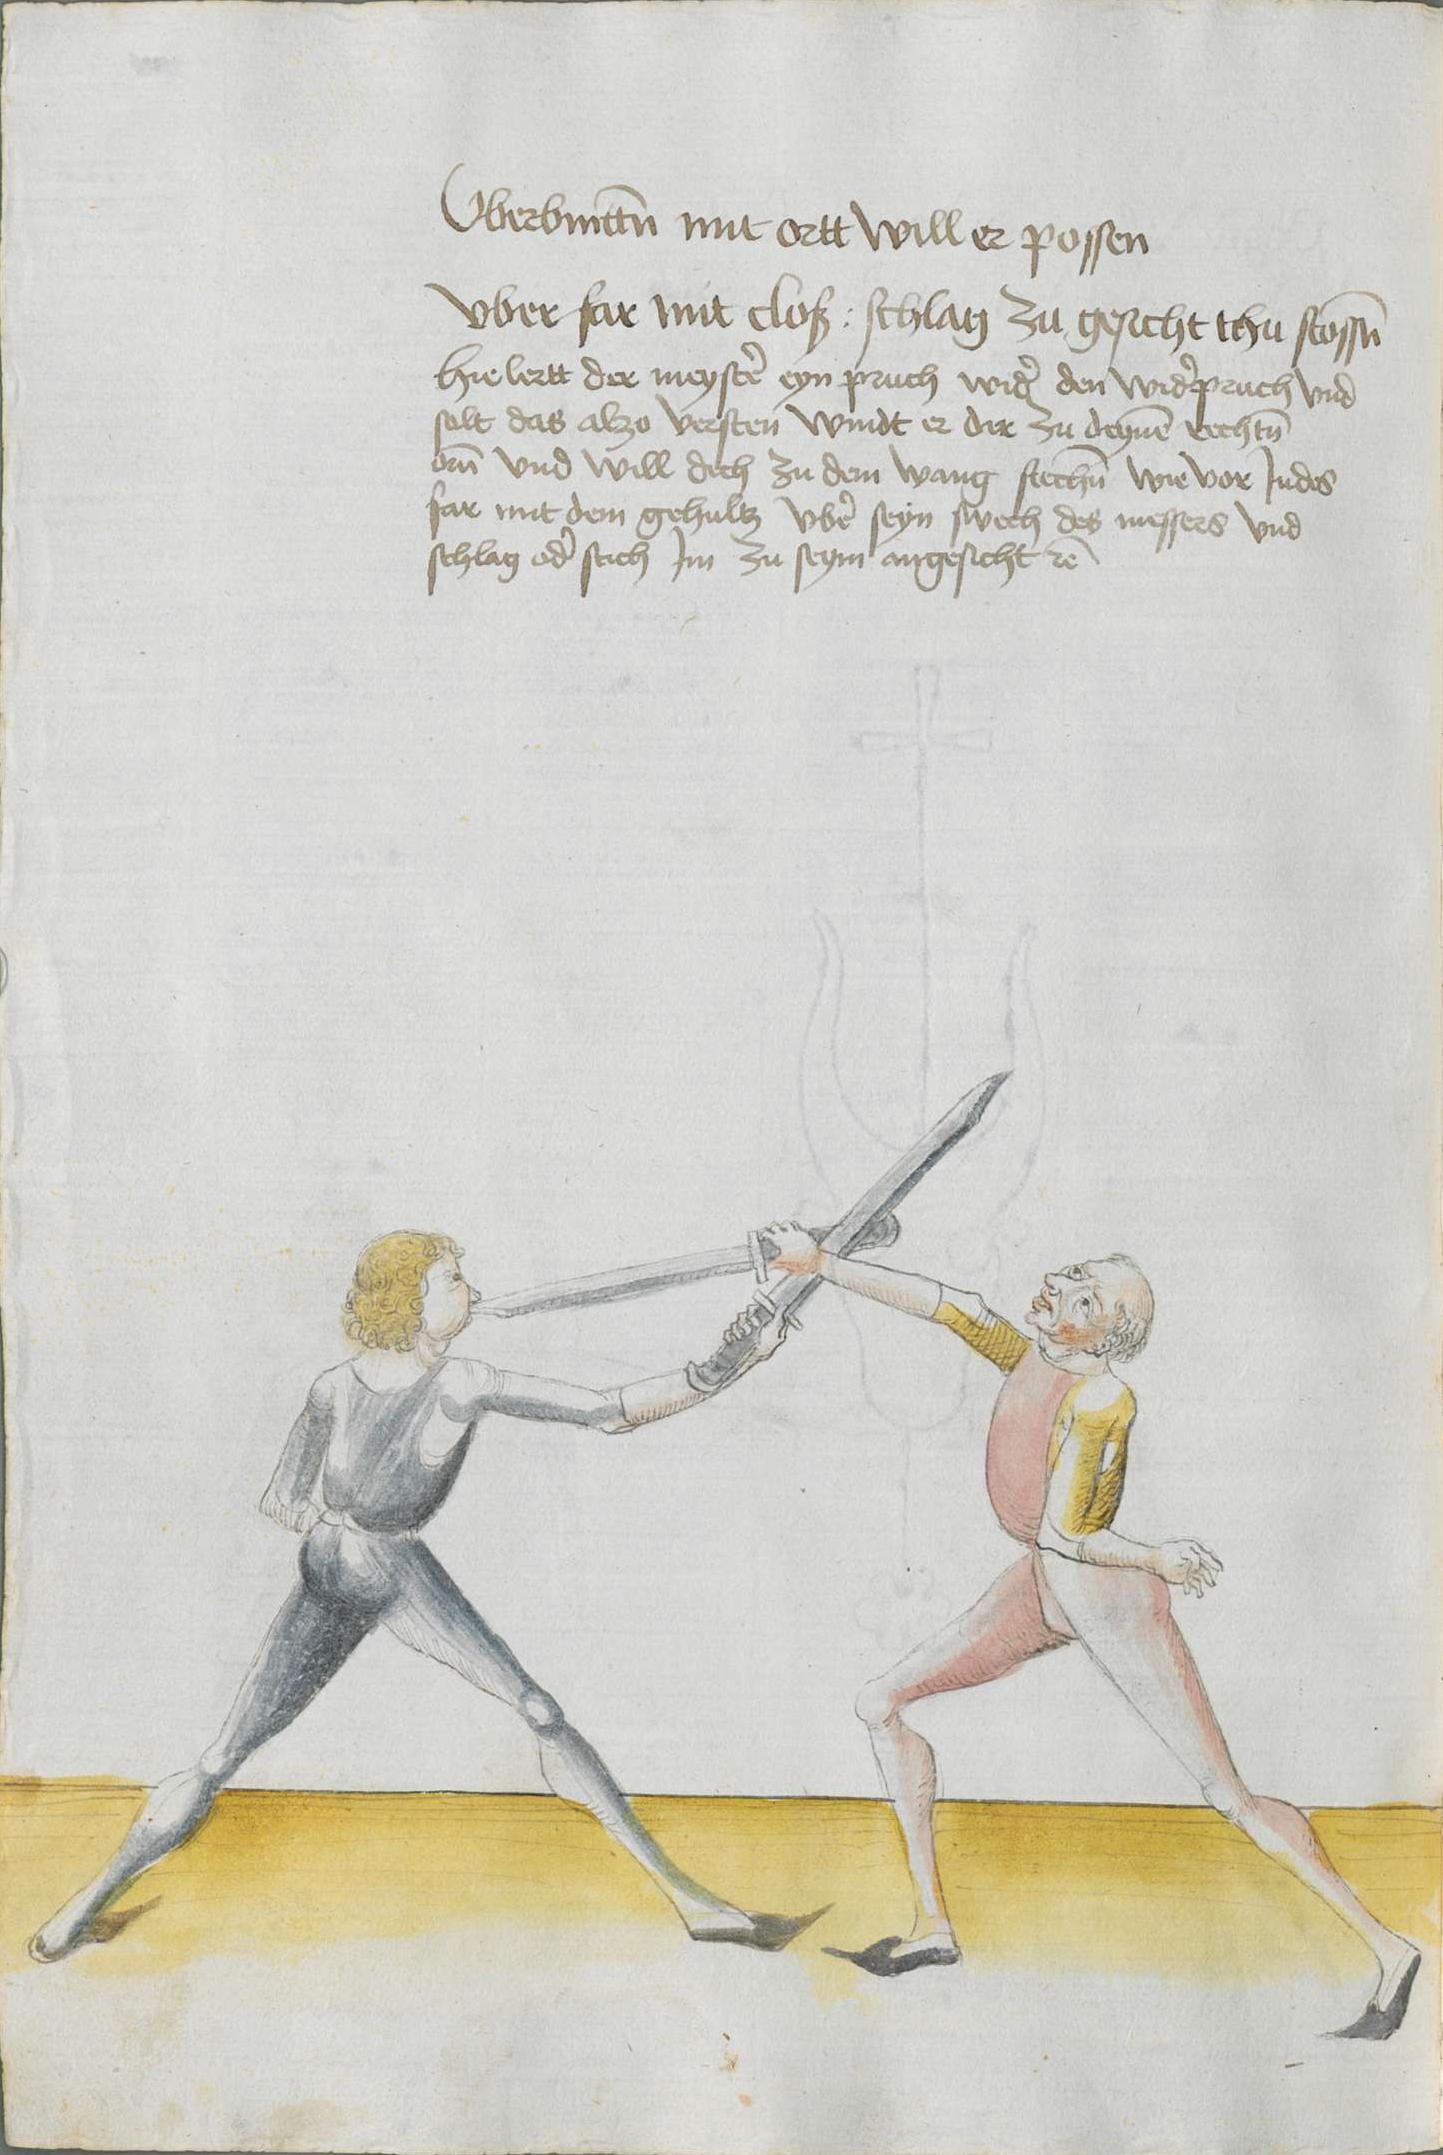 Vberbinttn̄ mit ortt will er possen
vber far mit cloß : schlag zu gesicht thu stossn̄
hie lertt der meystē eyn pruch wid̄ den wid̄pruch vnd
solt das alzo versten windt er dir zu deynē rechtn̄
orn̄ vnd will dich zu dem wang stechn̄ wie vor Jndes
far mit dem gehultz vbē seyn swech des messers vnd
schlag od̄ stich Jm zu seym angesicht rē